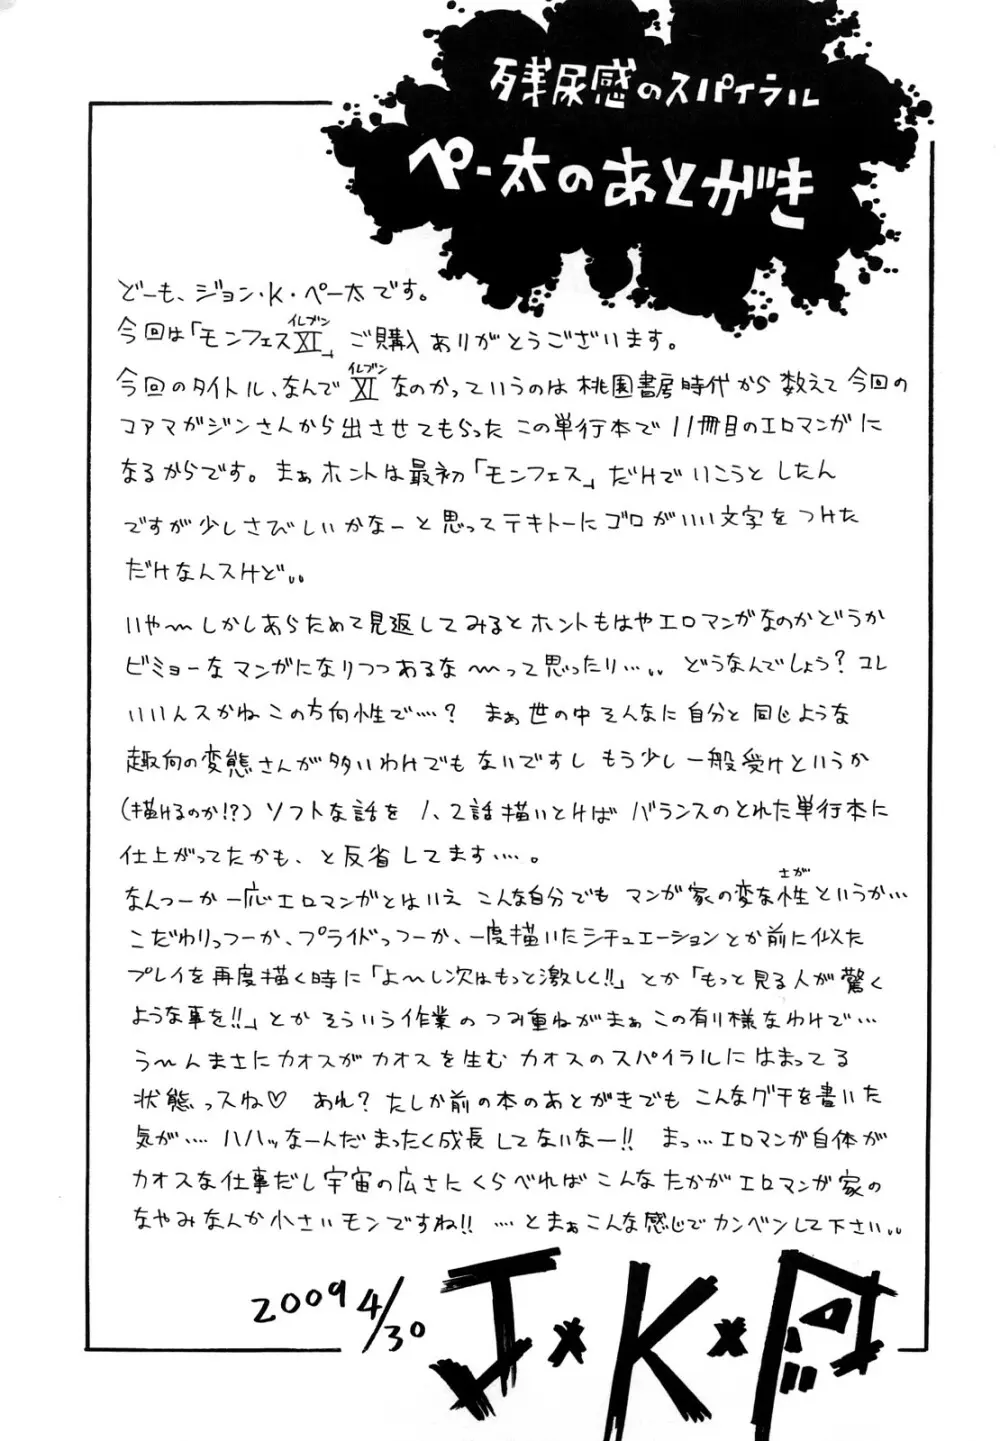 残尿感のスパイラル
ペー太のあとがき
どーも、ジョン・K・ペー太です。
今回は「モンフェスⅪ」ご購入ありがとうございます。
イレブン
今回のタイトル、なんでⅪなのかっていうのは桃園書房時代から数えて今回の
イレブン
コアマガジンさんから出させてもらったこの単行本で11冊目のエロマンガに
なるからです。まぁホントは最初「モンフェス」だけでいこうとしたん
ですが少しさびしいかなーと思ってテキトーにゴロがいい文字をつけた
だけなんスけど。。
いや〜しかしあらためて見返してみるとホントもはやエロマンガなのかどうか
ビミョーなマンガになりつつあるな〜って思ったり…。。どうなんでしょう?コレ
いいんスかねこの方向性で…?まぁ世の中そんなに自分と同じような
趣向の変態さんが多いわけでもないですしもう少し一般受けというか
(描けるのか!?)ソフトな話を1、2話描いとけばバランスのとれた単行本に
仕上がってたかも、と反省してます…。
なんつーか一応エロマンガとはいえこんな自分でもマンガ家の変な性というか…
さが
こだわりっつーか、プライドっつーか、一度描いたシチュエーションとか前に似た
プレイを再度描く時に「よ〜し次はもっと激しく!!」とか「もっと見る人が驚く
ような事を!!」とかそういう作業のつみ重ねがまぁこの有り様なわけで…
う〜んまさにカオスがカオスを生むカオスのスパイラルにはまってる
状態っスね♡ あれ?たしか前の本のあとがきでもこんなグチを書いた
気が…ハハッなーんだまったく成長してないなー!! まっ…エロマンガ自体が
カオスな仕事だし宇宙の広さにくらべればこんなたかがエロマンガ家の
なやみなんか小さいモンですね!! …とまぁこんな感じでカンベンして下さい。。
2009 4/30
J×K×P